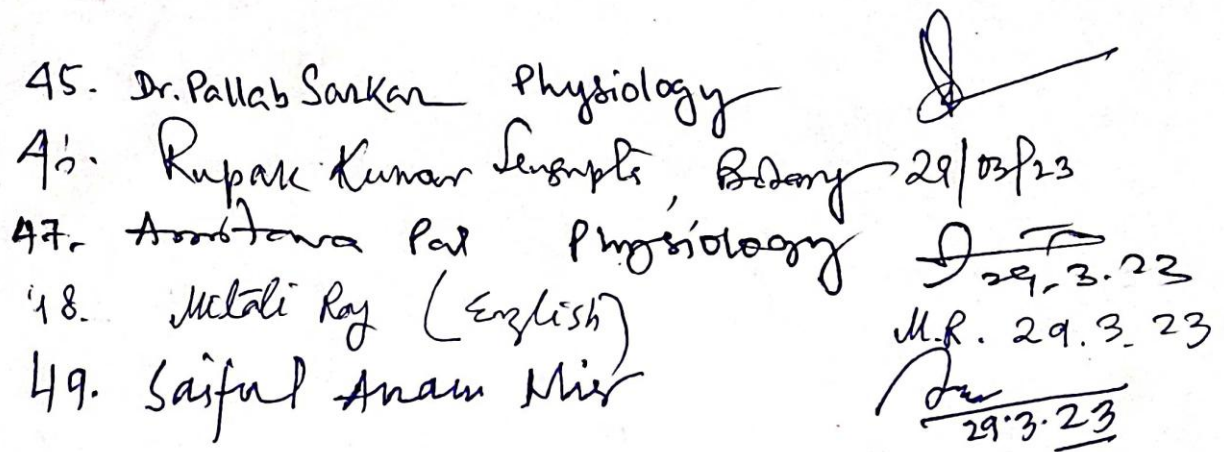 45. Dr. Pallab Sarkar Physiology
46. Rupak Kumar Sengupta, Botany 29/03/23
47. Pal Physiology 29.3.23
48. Mitali Ray (English) M.R. 29.3.23
49. Saiful Anam Mir 29.3.23